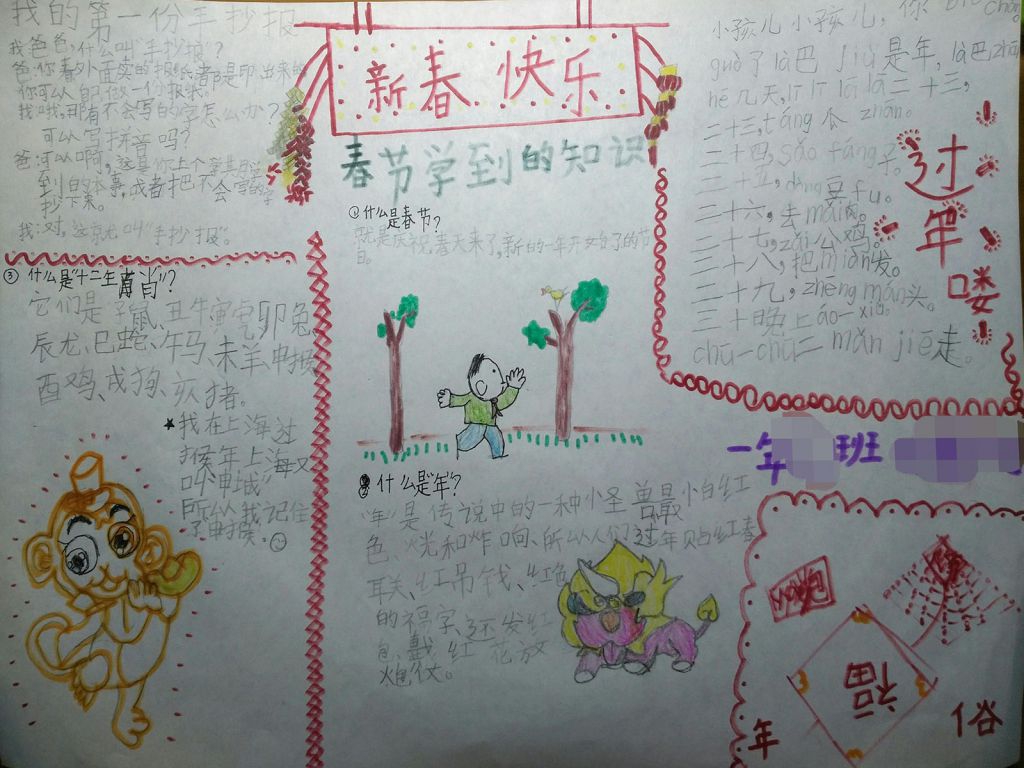 我的第一份手抄报
我:爸爸,什么叫"手抄报"?
爸:你看外面卖的报纸都是印出来的
你可以自己做一份报纸。
我:哦,那有不会写的字怎么办?
可以写拼音吗?
爸:可以啊,这是你上个学期
到的本事,或者把不会写的字
抄下来。
我:对,这就叫"手抄报"。
新春快乐
春节学到的知识
①什么是春节?
就是庆祝春天来了,新的一年开始了的节
日。
②什么是"年"?
"年"是传说中的一种小怪兽最怕红
色、火光和炸响、所以人们过年贴红春
联、红吊钱、红色
的福字、还发红
包、戴红花放
火包仗。
③什么是"十二生肖"?
它们是子鼠、丑牛寅虎、卯兔、
辰龙、巳蛇、午马、未羊申猴
酉鸡、戌狗、亥猪。
★我在上海过
猴年,上海又
叫"申城"
所以我记住
了申猴。
小孩儿小孩儿,你
guò了là巴jiù是年,là巴zhōu
hē几天,lī lī lā lā二十三,
二十三,táng瓜zhān。
二十四,sǎo fáng子。
二十五,dòng豆fu。
二十六,去mǎi肉。
二十七,zǎi公鸡。
二十八,把miàn发。
二十九,zhēng mán头。
三十晚上áo一xiǔ。
chū一chū二mǎn jiē走。
过年喽
一年 班
福
年俗